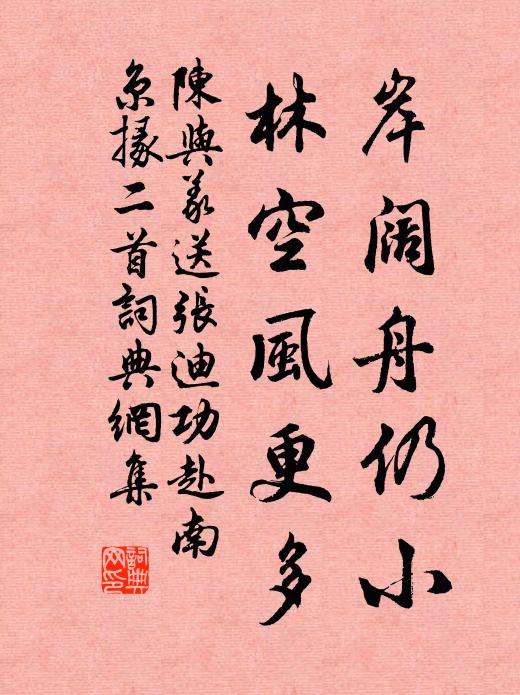 岸闊舟仍小
林空風更多
陳與義送張迪功赴南
京掾二首詞典網集
詞典
网印